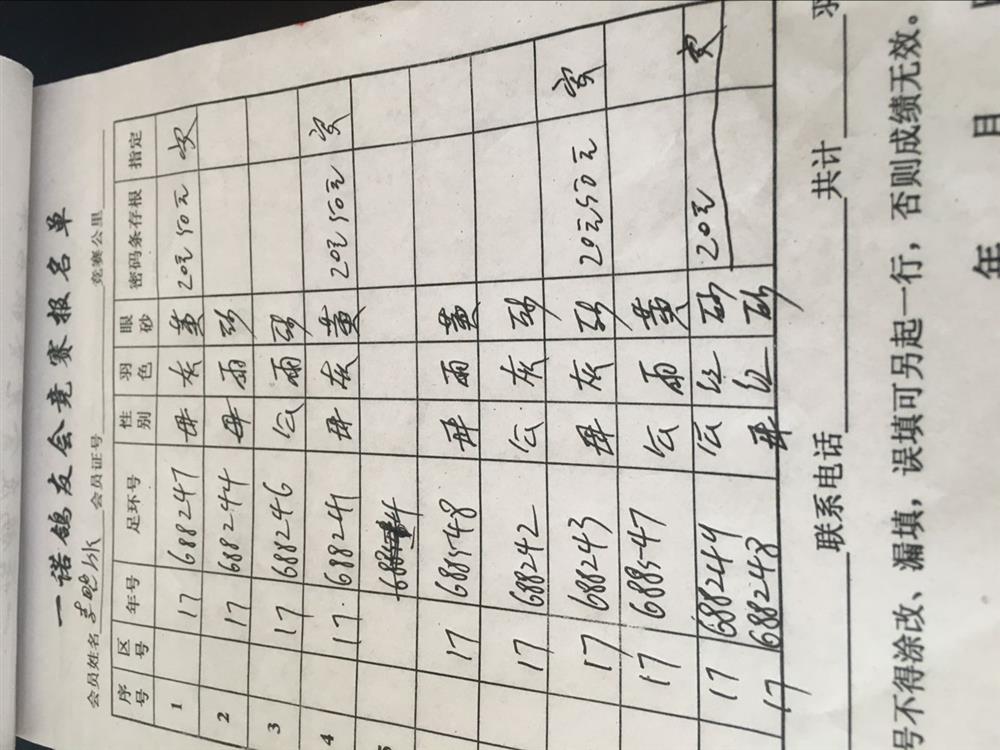 一诺鸽友会竞赛报名单
会员姓名 会员证号 竞赛公里
序号 区号 年号 足环号 性别 羽色 眼砂 密码条存根 指定
1 17 688247 母 灰 黄 20元50元
2 17 688244 母 雨 砂
3 17 688246 公 雨 砂
4 17 688241 母 灰 黄 20元50元
17 688548 母 雨 黄
17 688242 公 灰 砂
17 688243 母 灰 砂 20元50元
17 688547 公 雨 黄
17 688249 公 红 砂 20元
17 688248 母 红 砂
联系电话 共计 羽
号不得涂改、漏填，误填可另起一行，否则成绩无效。
年 月